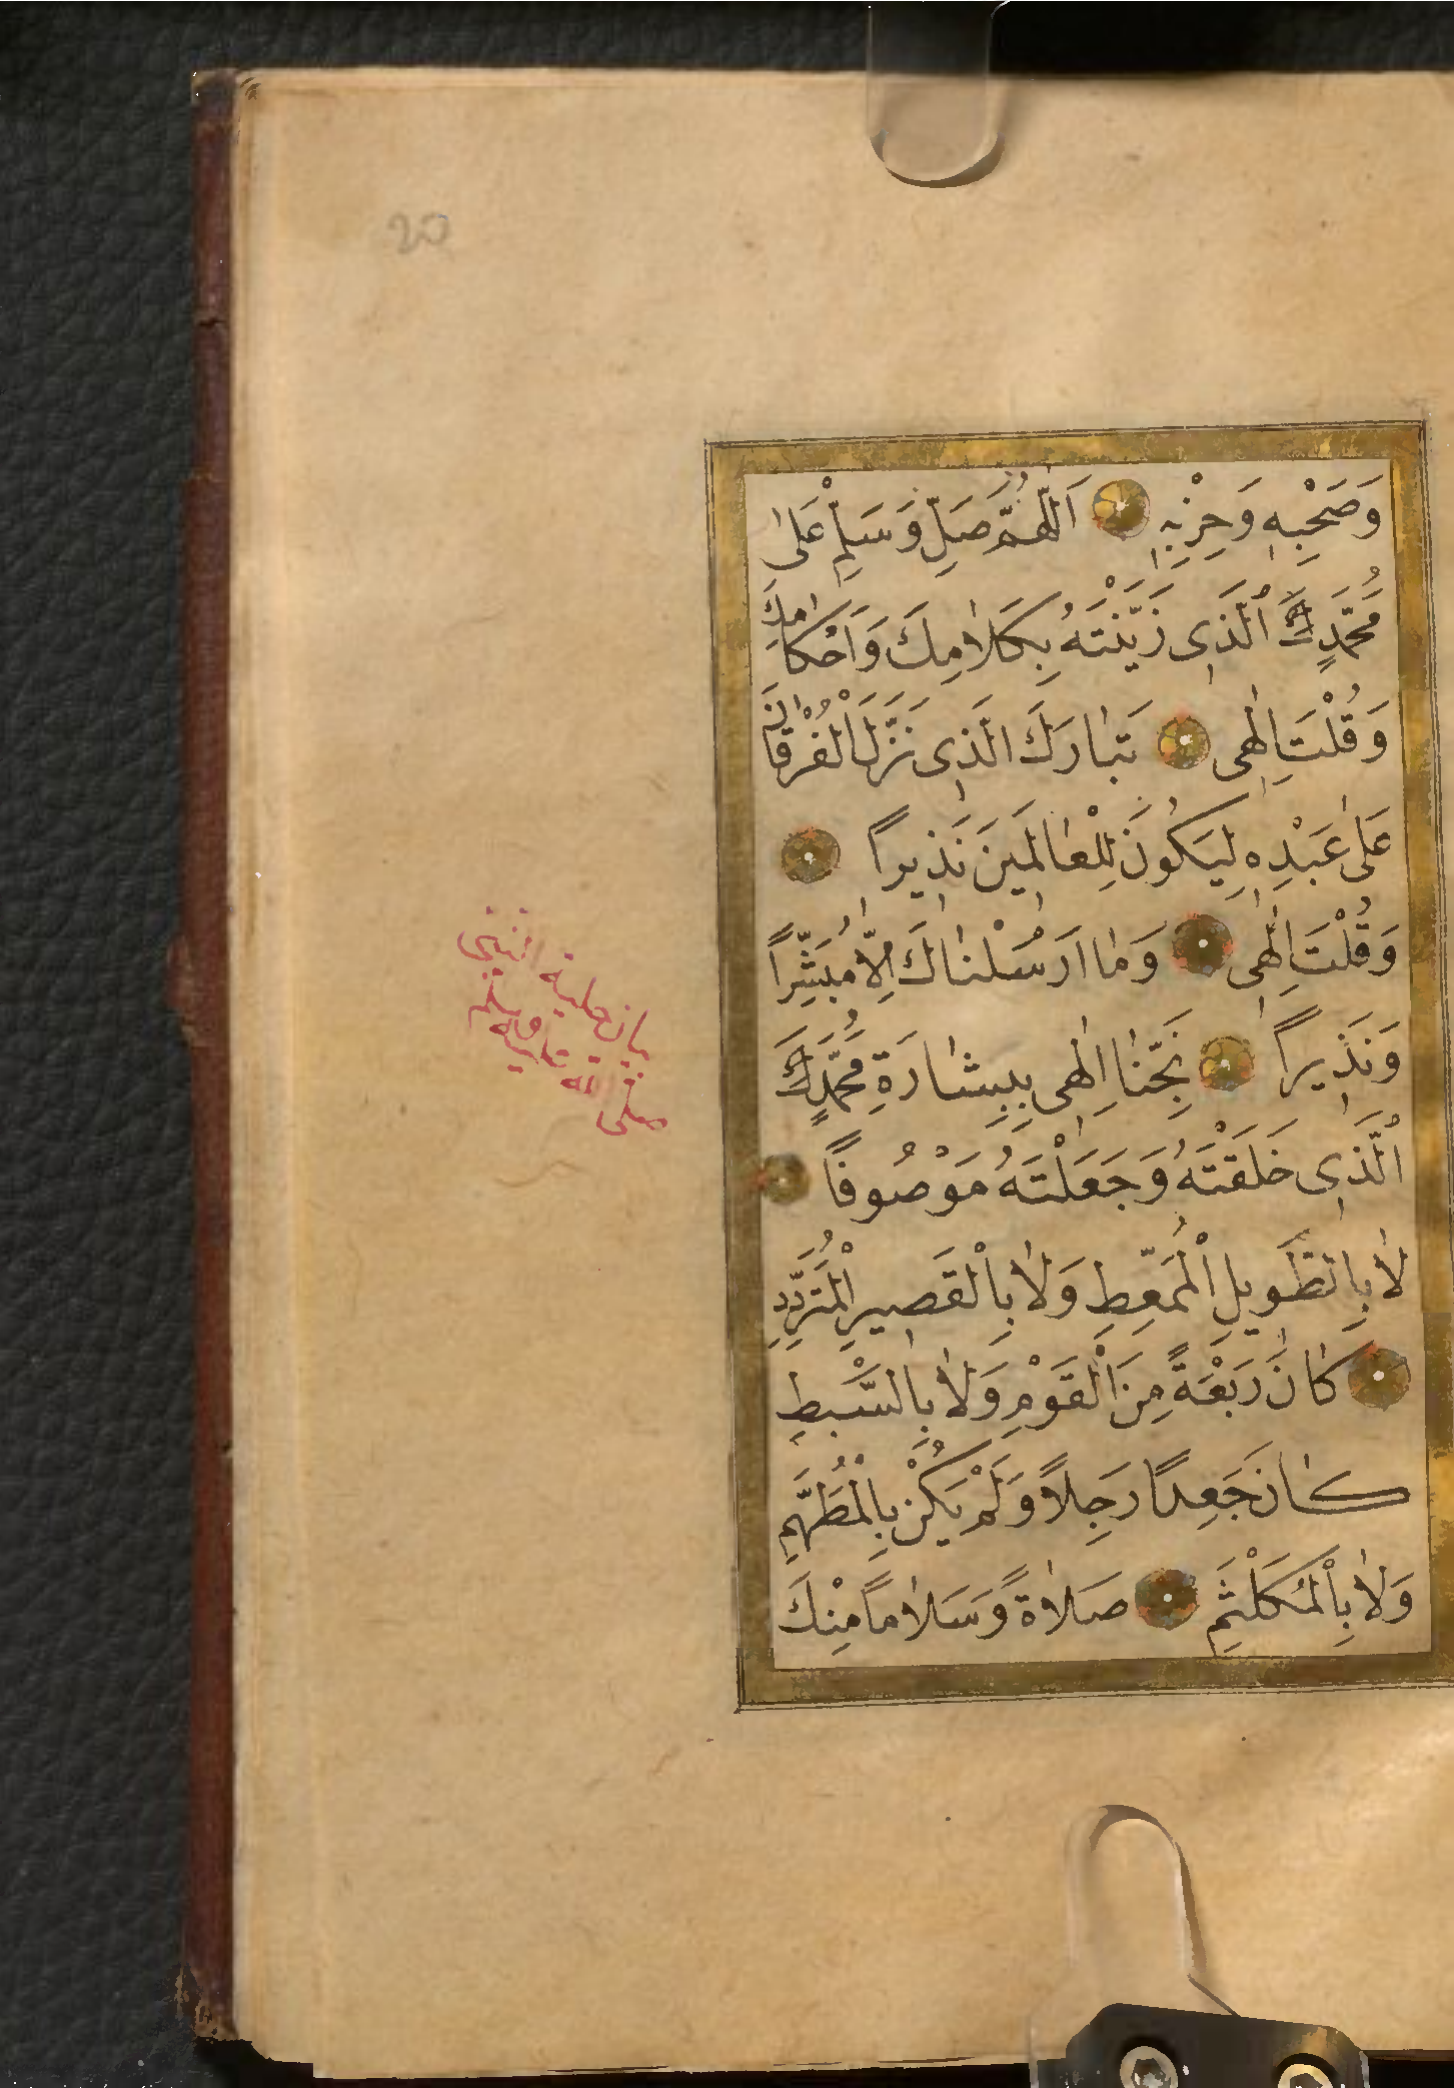 20
وَصَحْبِهِ وَحِزْبِهِ اَللّٰهُمَّ صَلِّ وَسَلِّمْ عَلٰى
مُحَمَّدٍكَ الَّذِى زَيَّنْتَهُ بِكَلَامِكَ وَاَحْكَامِكَ
وَقُلْتَ اِلٰهِى تَبَارَكَ الَّذِى نَزَّلَ الْفُرْقَانَ
عَلٰى عَبْدِهِ لِيَكُونَ لِلْعَالَمِينَ نَذِيراً
وَقُلْتَ اِلٰهِى وَمَا اَرْسَلْنَاكَ اِلَّا مُبَشِّراً
وَنَذِيراً نَجِّنَا اِلٰهِى بِبِشَارَةِ مُحَمَّدٍكَ
الَّذِى خَلَقْتَهُ وَجَعَلْتَهُ مَوْصُوفاً
لَا بِالطَّوِيلِ الْمُمَّعِطِ وَلَا بِالْقَصِيرِ الْمُتَرَدِّدِ
كَانَ رَبْعَةً مِنَ الْقَوْمِ وَلَا بِالسَّبْطِ
كَانَ جَعِداً رَجِلاً وَلَمْ يَكُنْ بِالْمُطَهَّمِ
وَلَا بِالْمُكَلْثَمِ صَلَاةً وَسَلَاماً مِنْكَ
بيان حلية النبى
صلى الله عليه وسلم